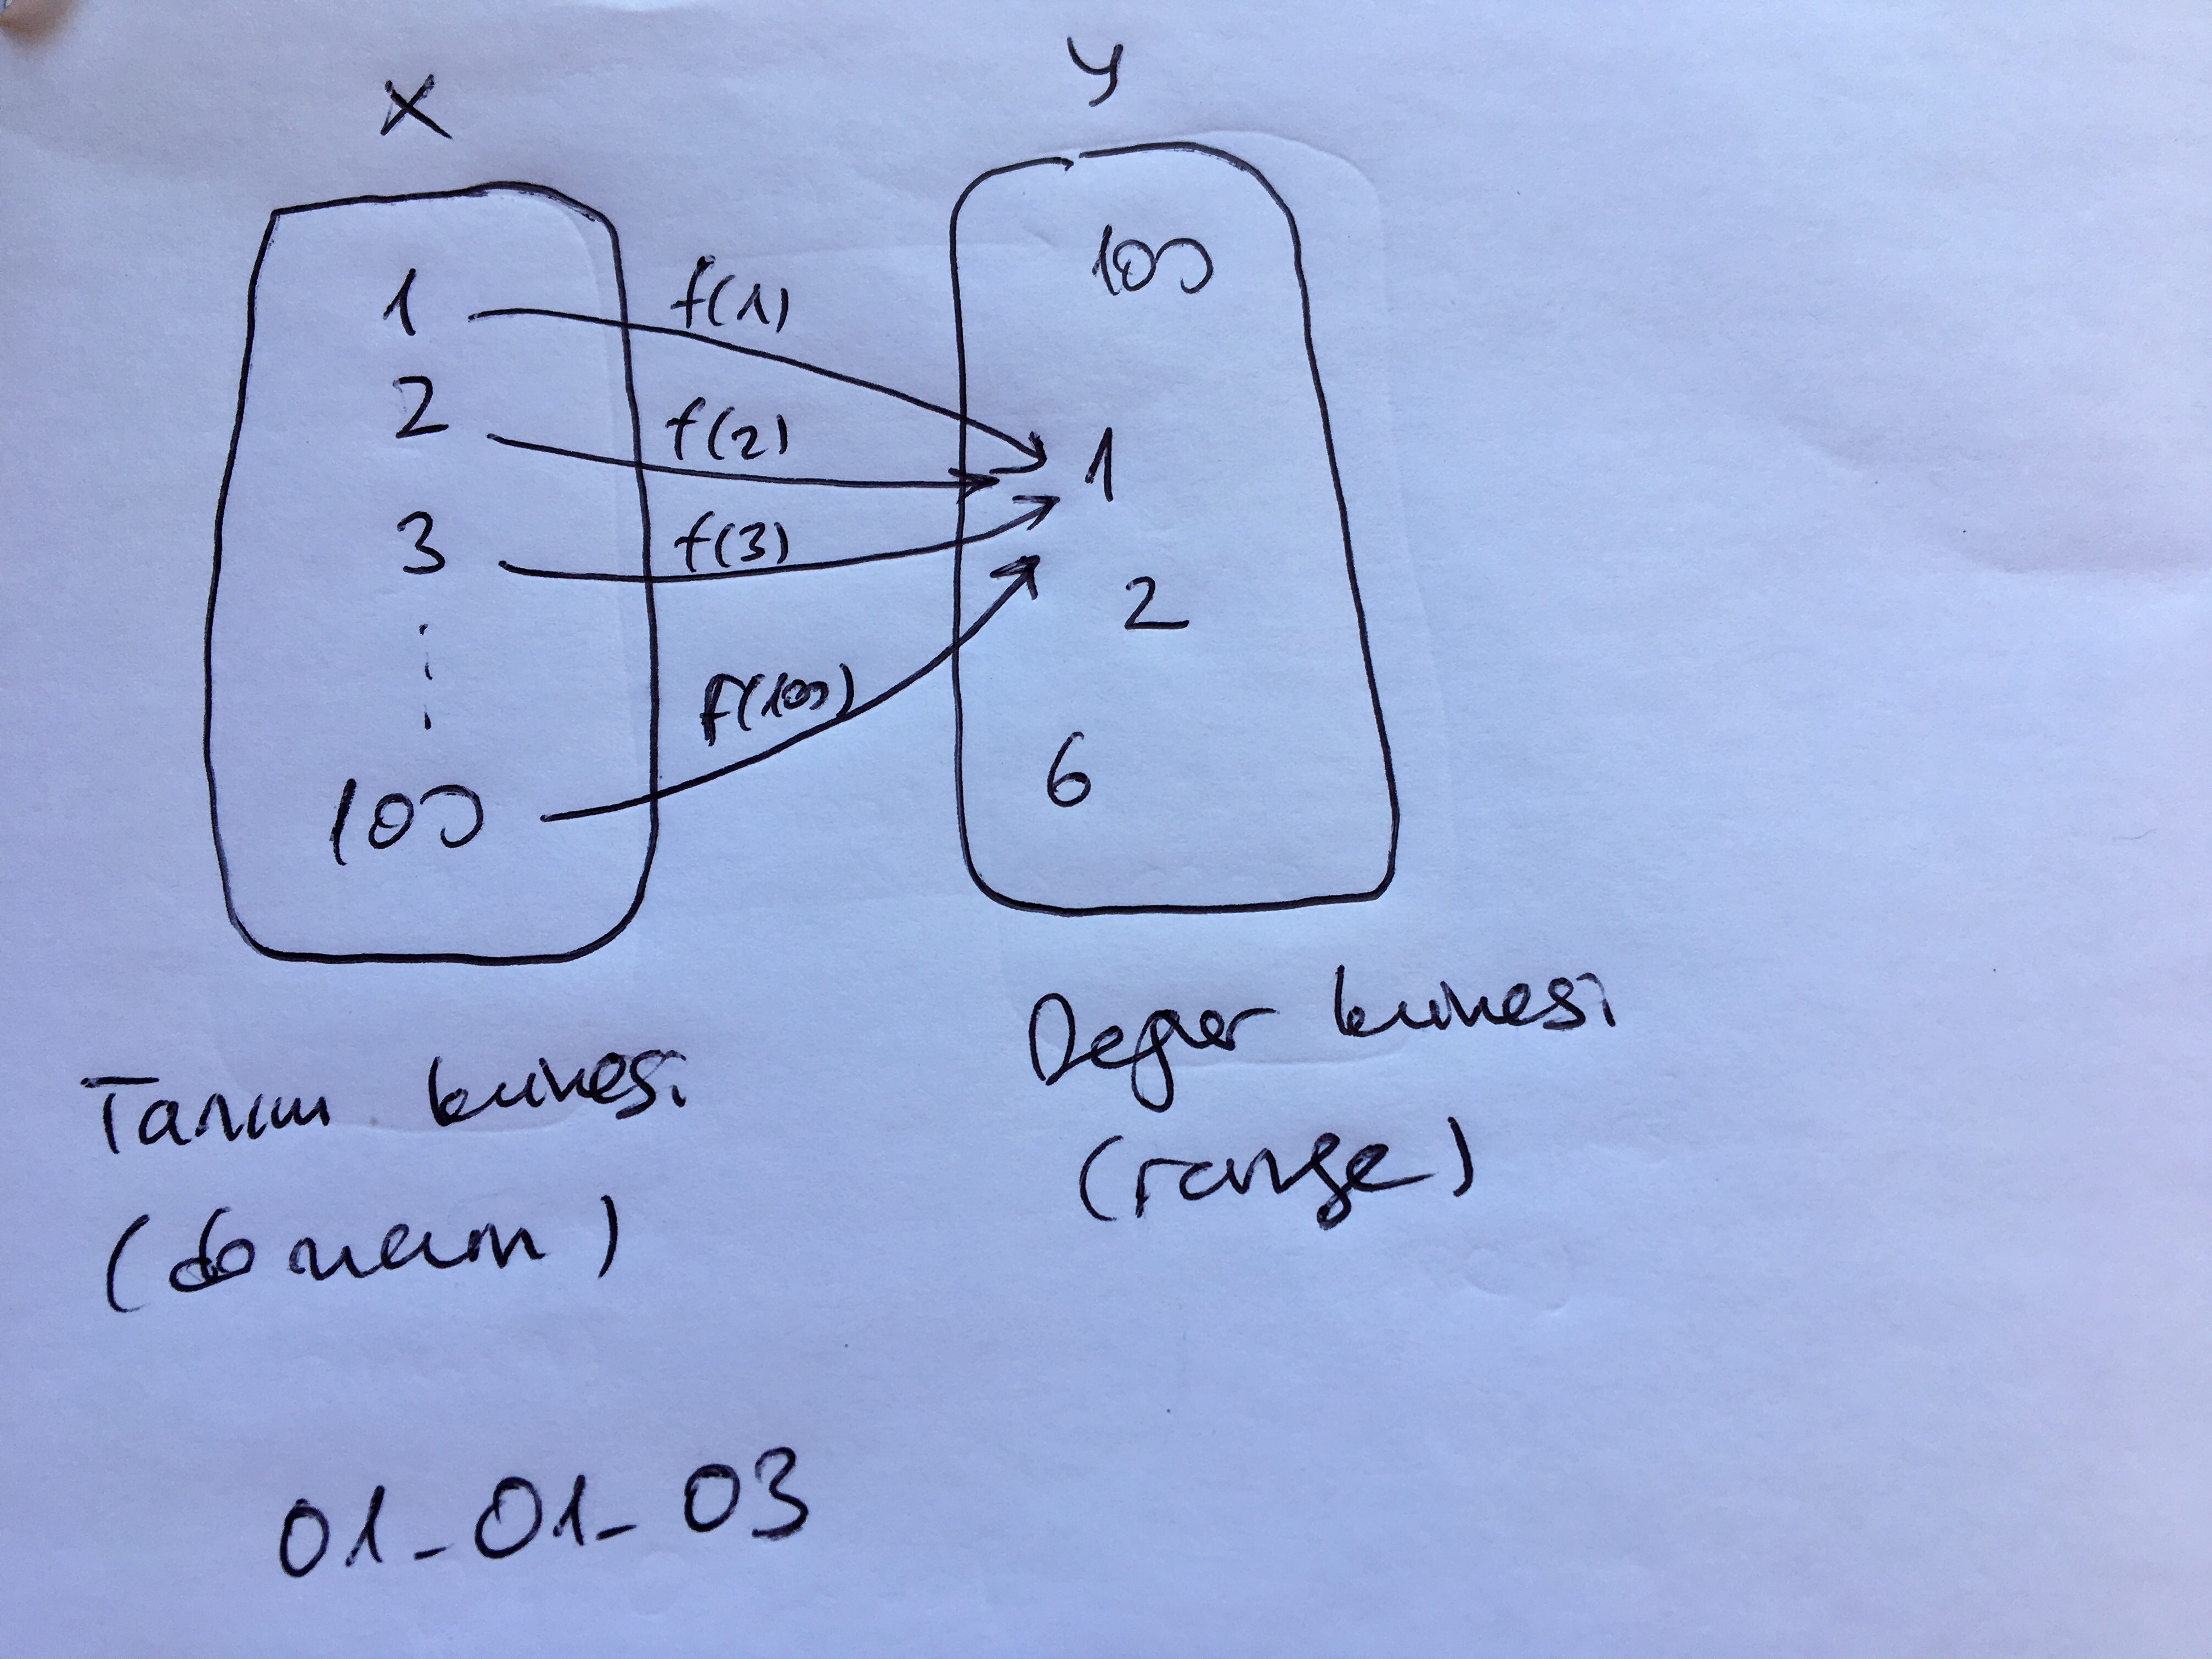 X
y
1
2
3
100
f(1)
f(2)
f(3)
f(100)
100
1
2
6
Tanım kümesi
(domain)
Değer kümesi
(range)
01_01_03